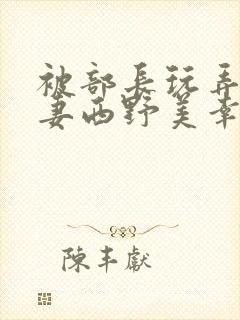 被部長玩弄
妻西野美幸
陳丰獻